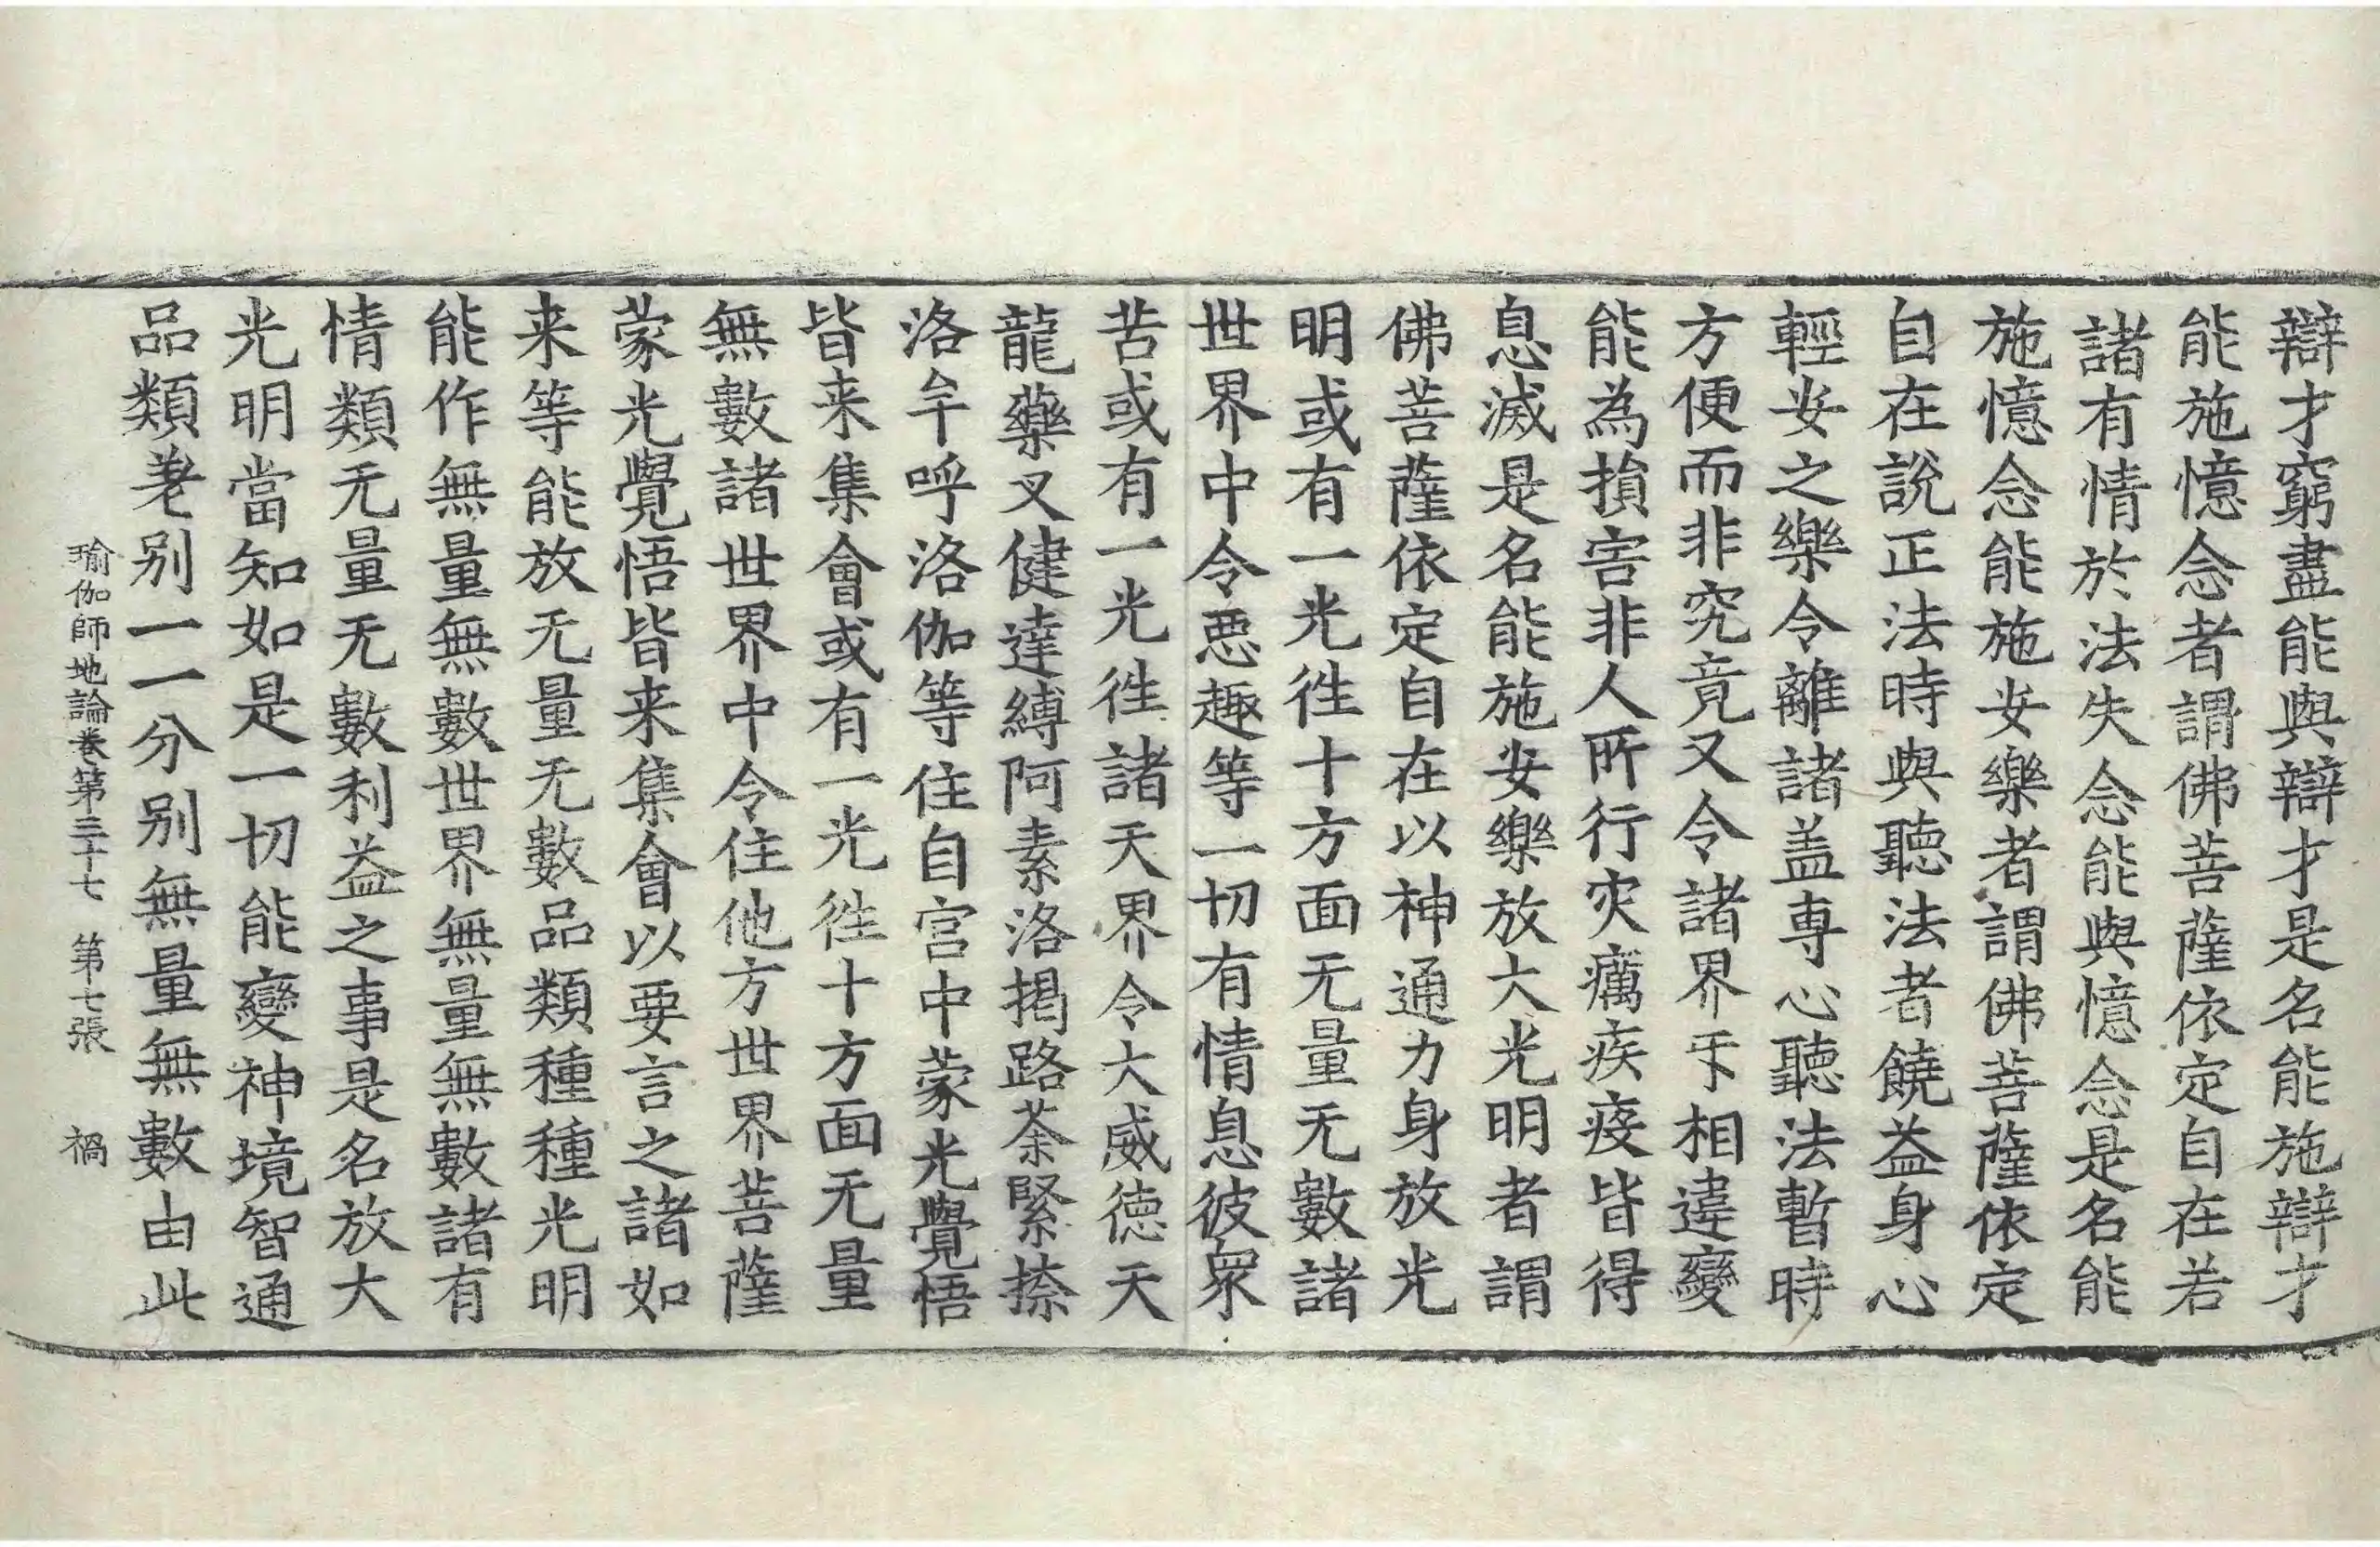 辯才窮盡能與辯才是名能施辯才
能施憶念者謂佛菩薩依定自在若
諸有情於法失念能與憶念是名能
施憶念能施安樂者謂佛菩薩依定
自在說正法時與聽法者饒益身心
輕安之樂令離諸盖專心聽法暫時
方便而非究竟又令諸界乎相違變
能為損害非人所行灾癘疾疫皆得
息滅是名能施安樂放大光明者謂
佛菩薩依定自在以神通力身放光
明或有一光徃十方面无量无數諸
世界中令惡趣等一切有情息彼衆
苦或有一光徃諸天界令大威德天
龍藥叉健達縛阿素洛揭路荼緊捺
洛牟呼洛伽等住自宮中蒙光覺悟
皆来集會或有一光徃十方面无量
無數諸世界中令住他方世界菩薩
蒙光覺悟皆来集會以要言之諸如
来等能放无量无數品類種種光明
能作無量無數世界無量無數諸有
情類无量无數利益之事是名放大
光明當知如是一切能變神境智通
品類差别一一分别無量無數由此
瑜伽師地論卷第三十七 第七張 禍